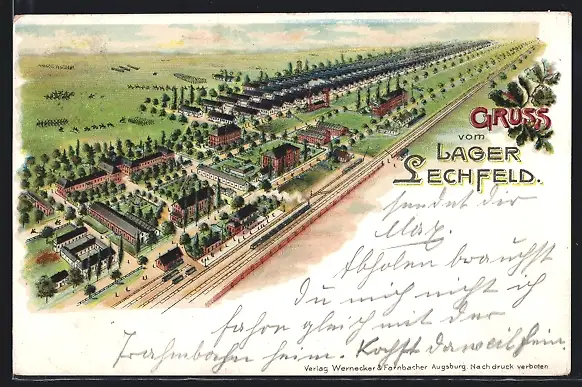 GRUSS
vom
LAGER
LECHFELD.
sendet dir
Max.
Abholen brauchst
du mich nicht ich
fahre gleich mit der
Trahmbahn heim. Kocht daweil fein.
Verlag Wernecker & Farnbacher Augsburg. Nachdruck verboten.